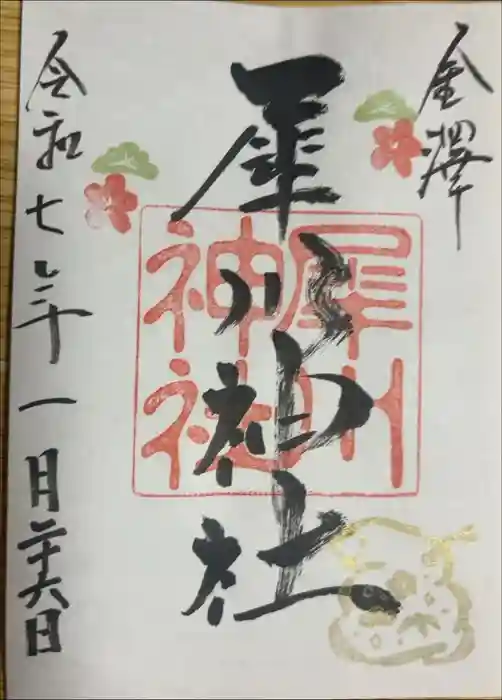 金澤
犀川神社
犀川神社
令和七年十一月二十六日